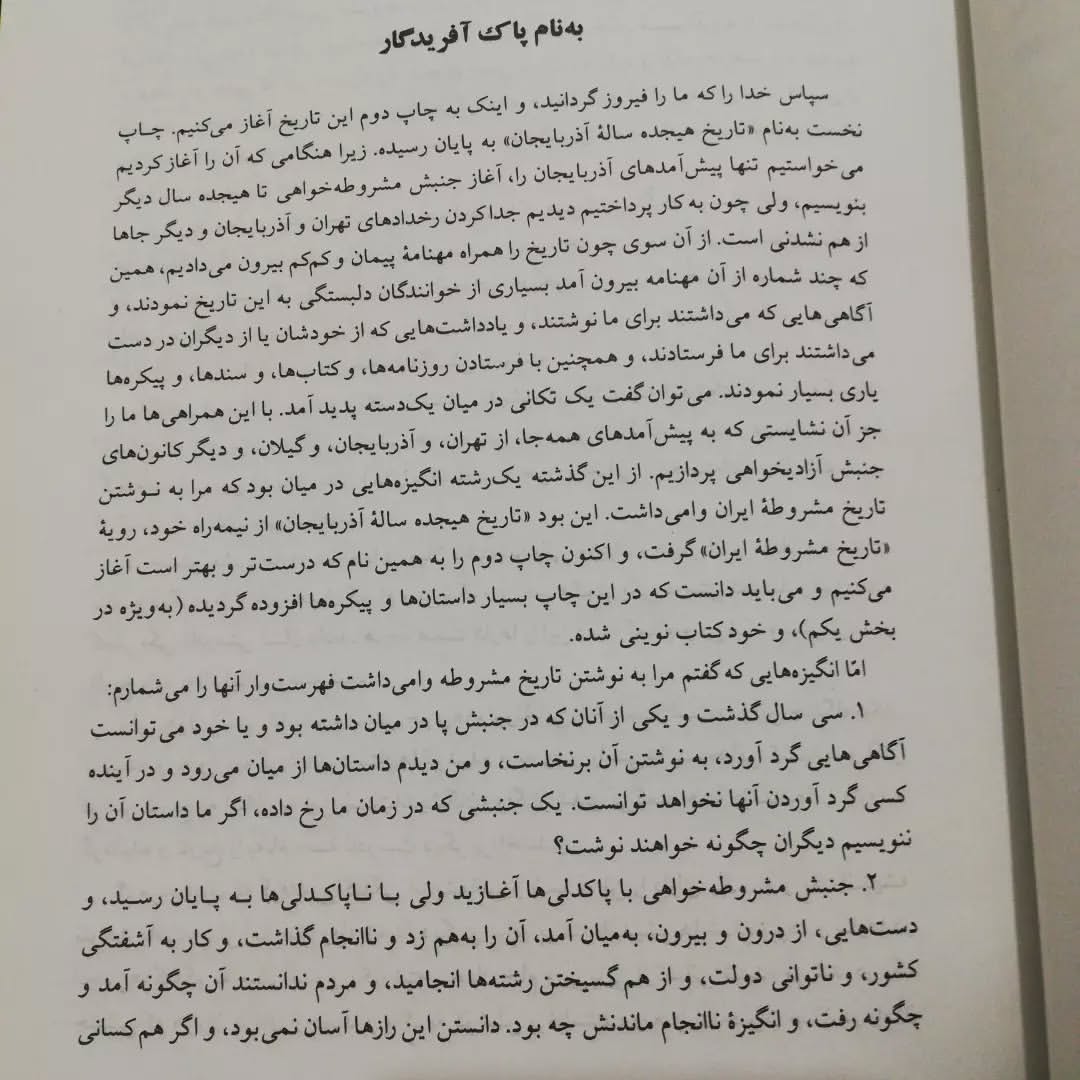 به‌نام پاک آفریدگار
سپاس خدا را که ما را فیروز گردانید، و اینک به چاپ دوم این تاریخ آغاز می‌کنیم. چاپ
نخست به‌نام «تاریخ هیجده سالۀ آذربایجان» به پایان رسیده. زیرا هنگامی که آن را آغاز کردیم
می‌خواستیم تنها پیش‌آمدهای آذربایجان را، آغاز جنبش مشروطه‌خواهی تا هیجده سال دیگر
بنویسیم، ولی چون به کار پرداختیم دیدیم جدا کردن رخدادهای تهران و آذربایجان و دیگر جاها
از هم نشدنی است. از آن سوی چون تاریخ را همراه مهنامۀ پیمان و کم‌کم بیرون می‌دادیم، همین
که چند شماره از آن مهنامه بیرون آمد بسیاری از خوانندگان دلبستگی به این تاریخ نمودند، و
آگاهی‌هایی که می‌داشتند برای ما نوشتند، و یادداشت‌هایی که از خودشان یا از دیگران در دست
می‌داشتند برای ما فرستادند، و همچنین با فرستادن روزنامه‌ها، و کتاب‌ها، و سندها، و پیکره‌ها
یاری بسیار نمودند. می‌توان گفت یک تکانی در میان یک‌دسته پدید آمد. با این همراهی‌ها ما را
جز آن نشایستی که به پیش‌آمدهای همه‌جا، از تهران، و آذربایجان، و گیلان، و دیگر کانون‌های
جنبش آزادیخواهی پردازیم. از این گذشته یک‌رشته انگیزه‌هایی در میان بود که مرا به نوشتن
تاریخ مشروطۀ ایران وامی‌داشت. این بود «تاریخ هیجده سالۀ آذربایجان» از نیمه‌راه خود، رویۀ
«تاریخ مشروطۀ ایران» گرفت، و اکنون چاپ دوم را به همین نام که درست‌تر و بهتر است آغاز
می‌کنیم و می‌باید دانست که در این چاپ بسیار داستان‌ها و پیکره‌ها افزوده گردیده (به‌ویژه در
بخش یکم)، و خود کتاب نوینی شده.
امّا انگیزه‌هایی که گفتم مرا به نوشتن تاریخ مشروطه وامی‌داشت فهرست‌وار آنها را می‌شمارم:
۱. سی سال گذشت و یکی از آنان که در جنبش پا در میان داشته بود و یا خود می‌توانست
آگاهی‌هایی گرد آورد، به نوشتن آن برنخاست، و من دیدم داستان‌ها از میان می‌رود و در آینده
کسی گرد آوردن آنها نخواهد توانست. یک جنبشی که در زمان ما رخ داده، اگر ما داستان آن را
ننویسیم دیگران چگونه خواهند نوشت؟
۲. جنبش مشروطه‌خواهی با پاکدلی‌ها آغازید ولی با ناپاکدلی‌ها به پایان رسید، و
دست‌هایی، از درون و بیرون، به‌میان آمد، آن را به‌هم زد و ناانجام گذاشت، و کار به آشفتگی
کشور، و ناتوانی دولت، و از هم گسیختن رشته‌ها انجامید، و مردم ندانستند آن چگونه آمد و
چگونه رفت، و انگیزۀ ناانجام ماندنش چه بود. دانستن این رازها آسان نمی‌بود، و اگر هم کسانی